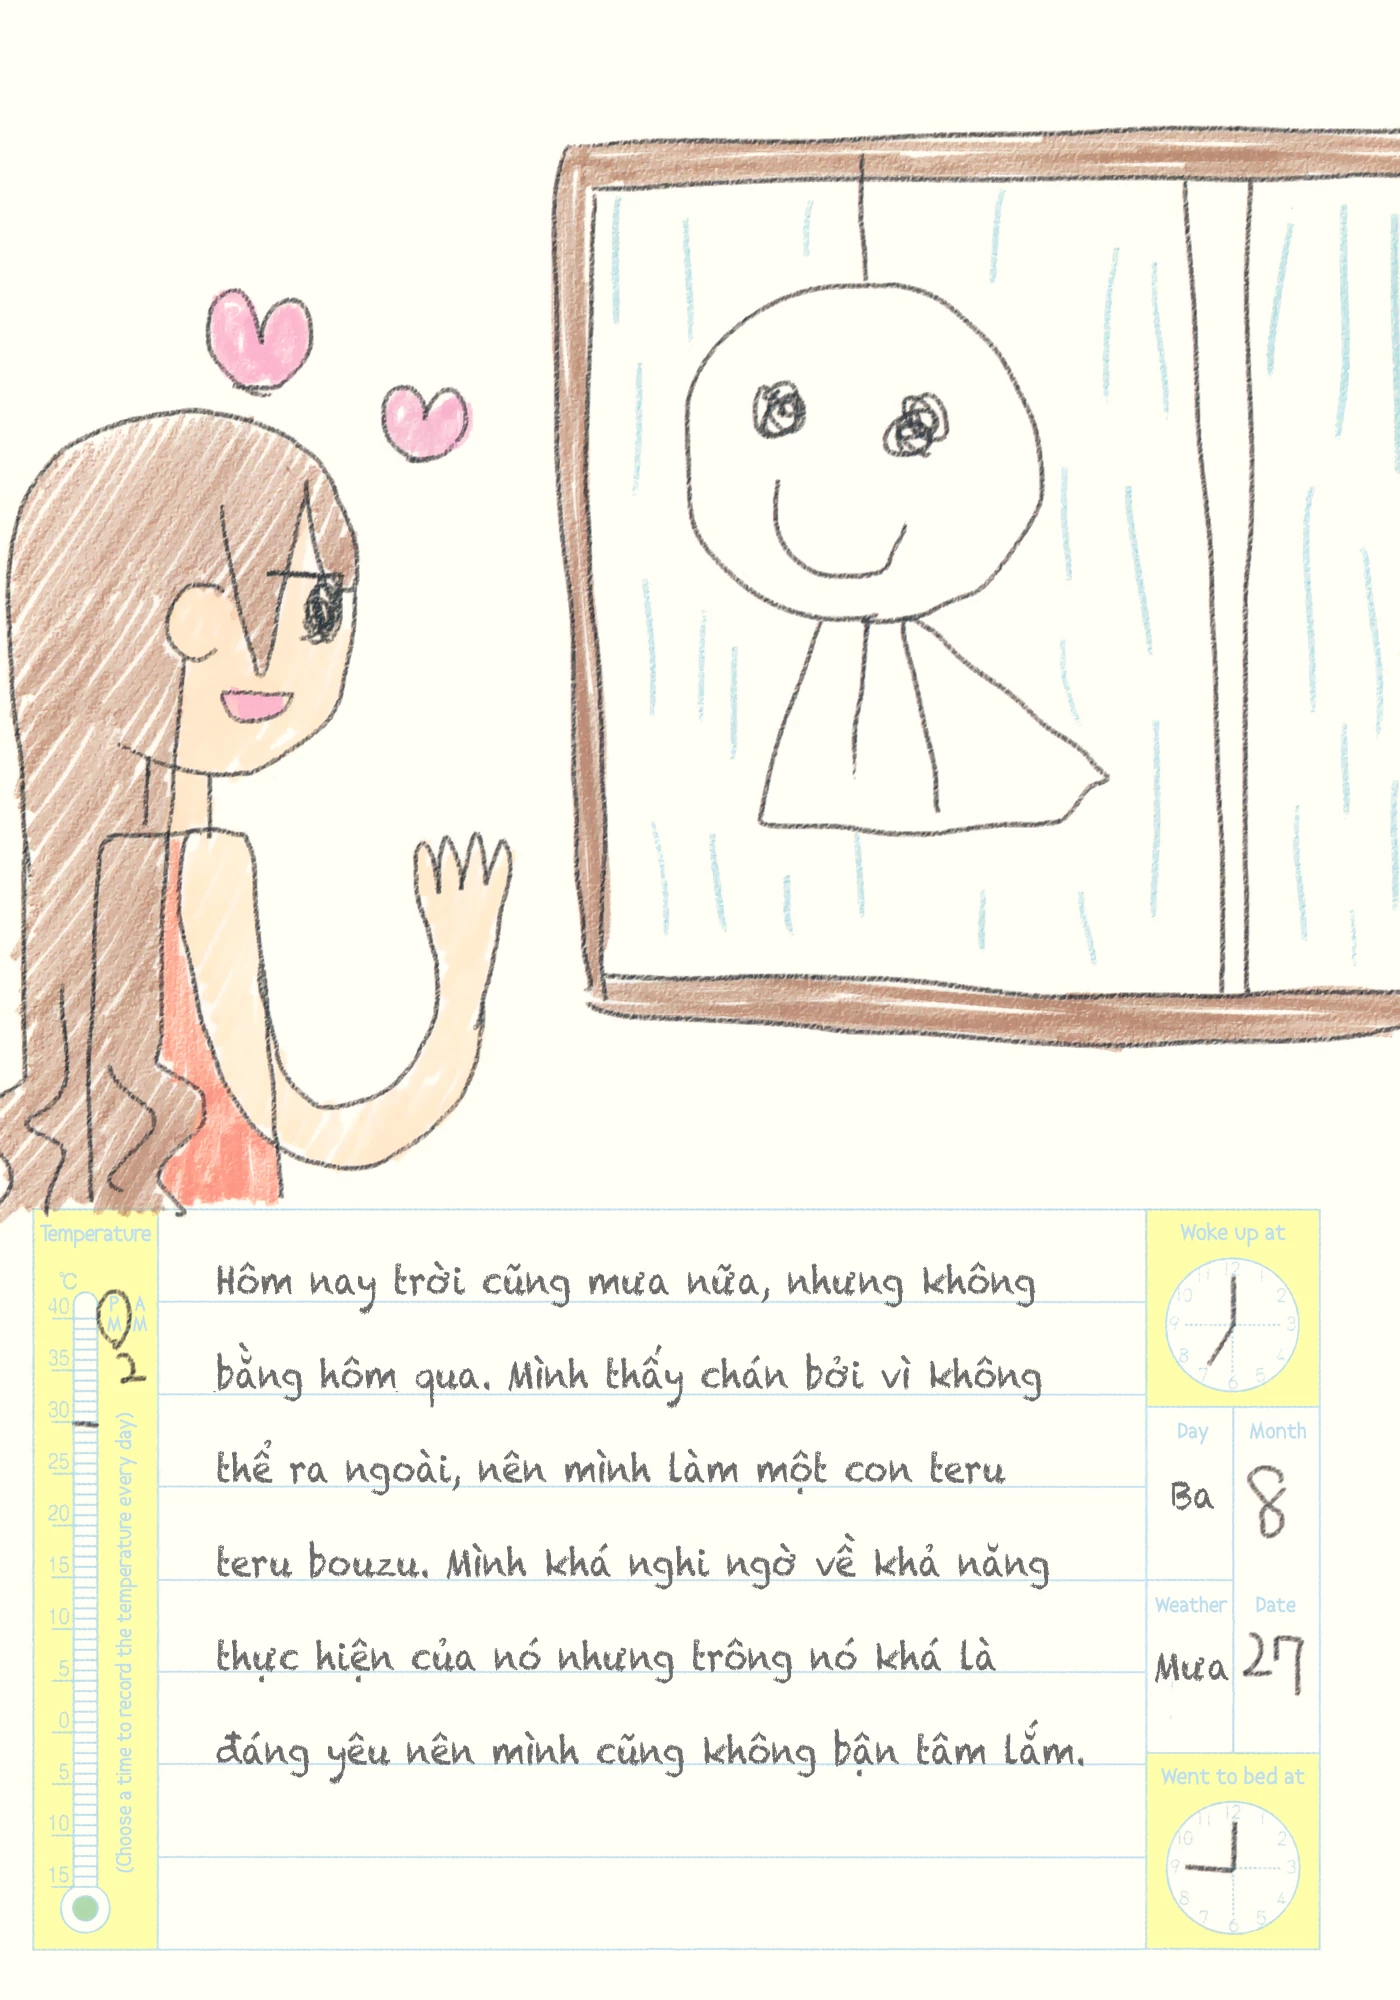 Temperature
℃
40
35
30
25
20
15
10
5
0
5
10
15
PM
AM
2
(Choose a time to record the temperature every day)
Hôm nay trời cũng mưa nữa, nhưng không
bằng hôm qua. Mình thấy chán bởi vì không
thể ra ngoài, nên mình làm một con teru
teru bouzu. Mình khá nghi ngờ về khả năng
thực hiện của nó nhưng trông nó khá là
đáng yêu nên mình cũng không bận tâm lắm.
Woke up at
11 12 1
10 2
9 3
8 4
7 6 5
Day Month
Ba 8
Weather Date
Mưa 27
Went to bed at
11 12 1
10 2
9 3
8 4
7 6 5